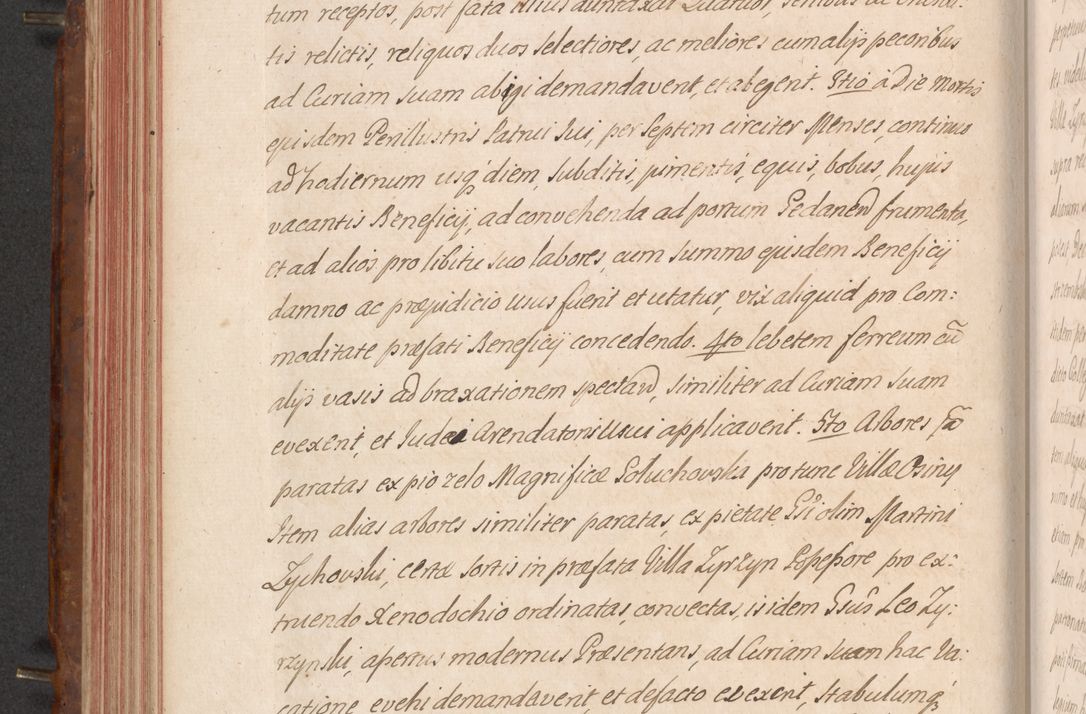 tum receptos, post fata illius duntaxat Quatuor, senibus ac
tis relictis, reliquos duos selectiores, ac meliores cum alijs pecoribus
ad Curiam suam abigi demandaverit, et abegerit. 3tio à Die Mortis
ejusdem Perillustris Patrui sui, per septem circiter Menses, continuo
ad hodiernum usq diem, subditis, jumentis, equis, bobus, hujus
vacantis Beneficij, ad convehenda ad portum Gedanen frumenta,
et ad alios pro libitu suo labores, cum summo ejusdem Beneficij
damno ac præjudicio usus fuerit et utatur, vix aliquid pro Com:
moditate præfati Beneficij concedendo. 4to lebetem ferreum cū
alijs vasis ad braxationem spectand, similiter ad Curiam suam
evexerit, et Judæi Arendatoris usui applicaverit. 5to Arbores
paratas ex pio zelo Magnificæ Goluchovska pro tunc Villæ Osiny
Item alias arbores similiter paratas, ex pietate Gsi olim Martini
Zychovski, certæ sortis in præfata Villa Zyrzyn Possessore pro ex:
truendo Xenodochio ordinatas, convectas, isidem Gsus Leo Zy:
rzynski, assertus modernus Præsentans, ad Curiam suam hac Va:
catione evehi demandaverit, et defacto evexerit, Stabulumq